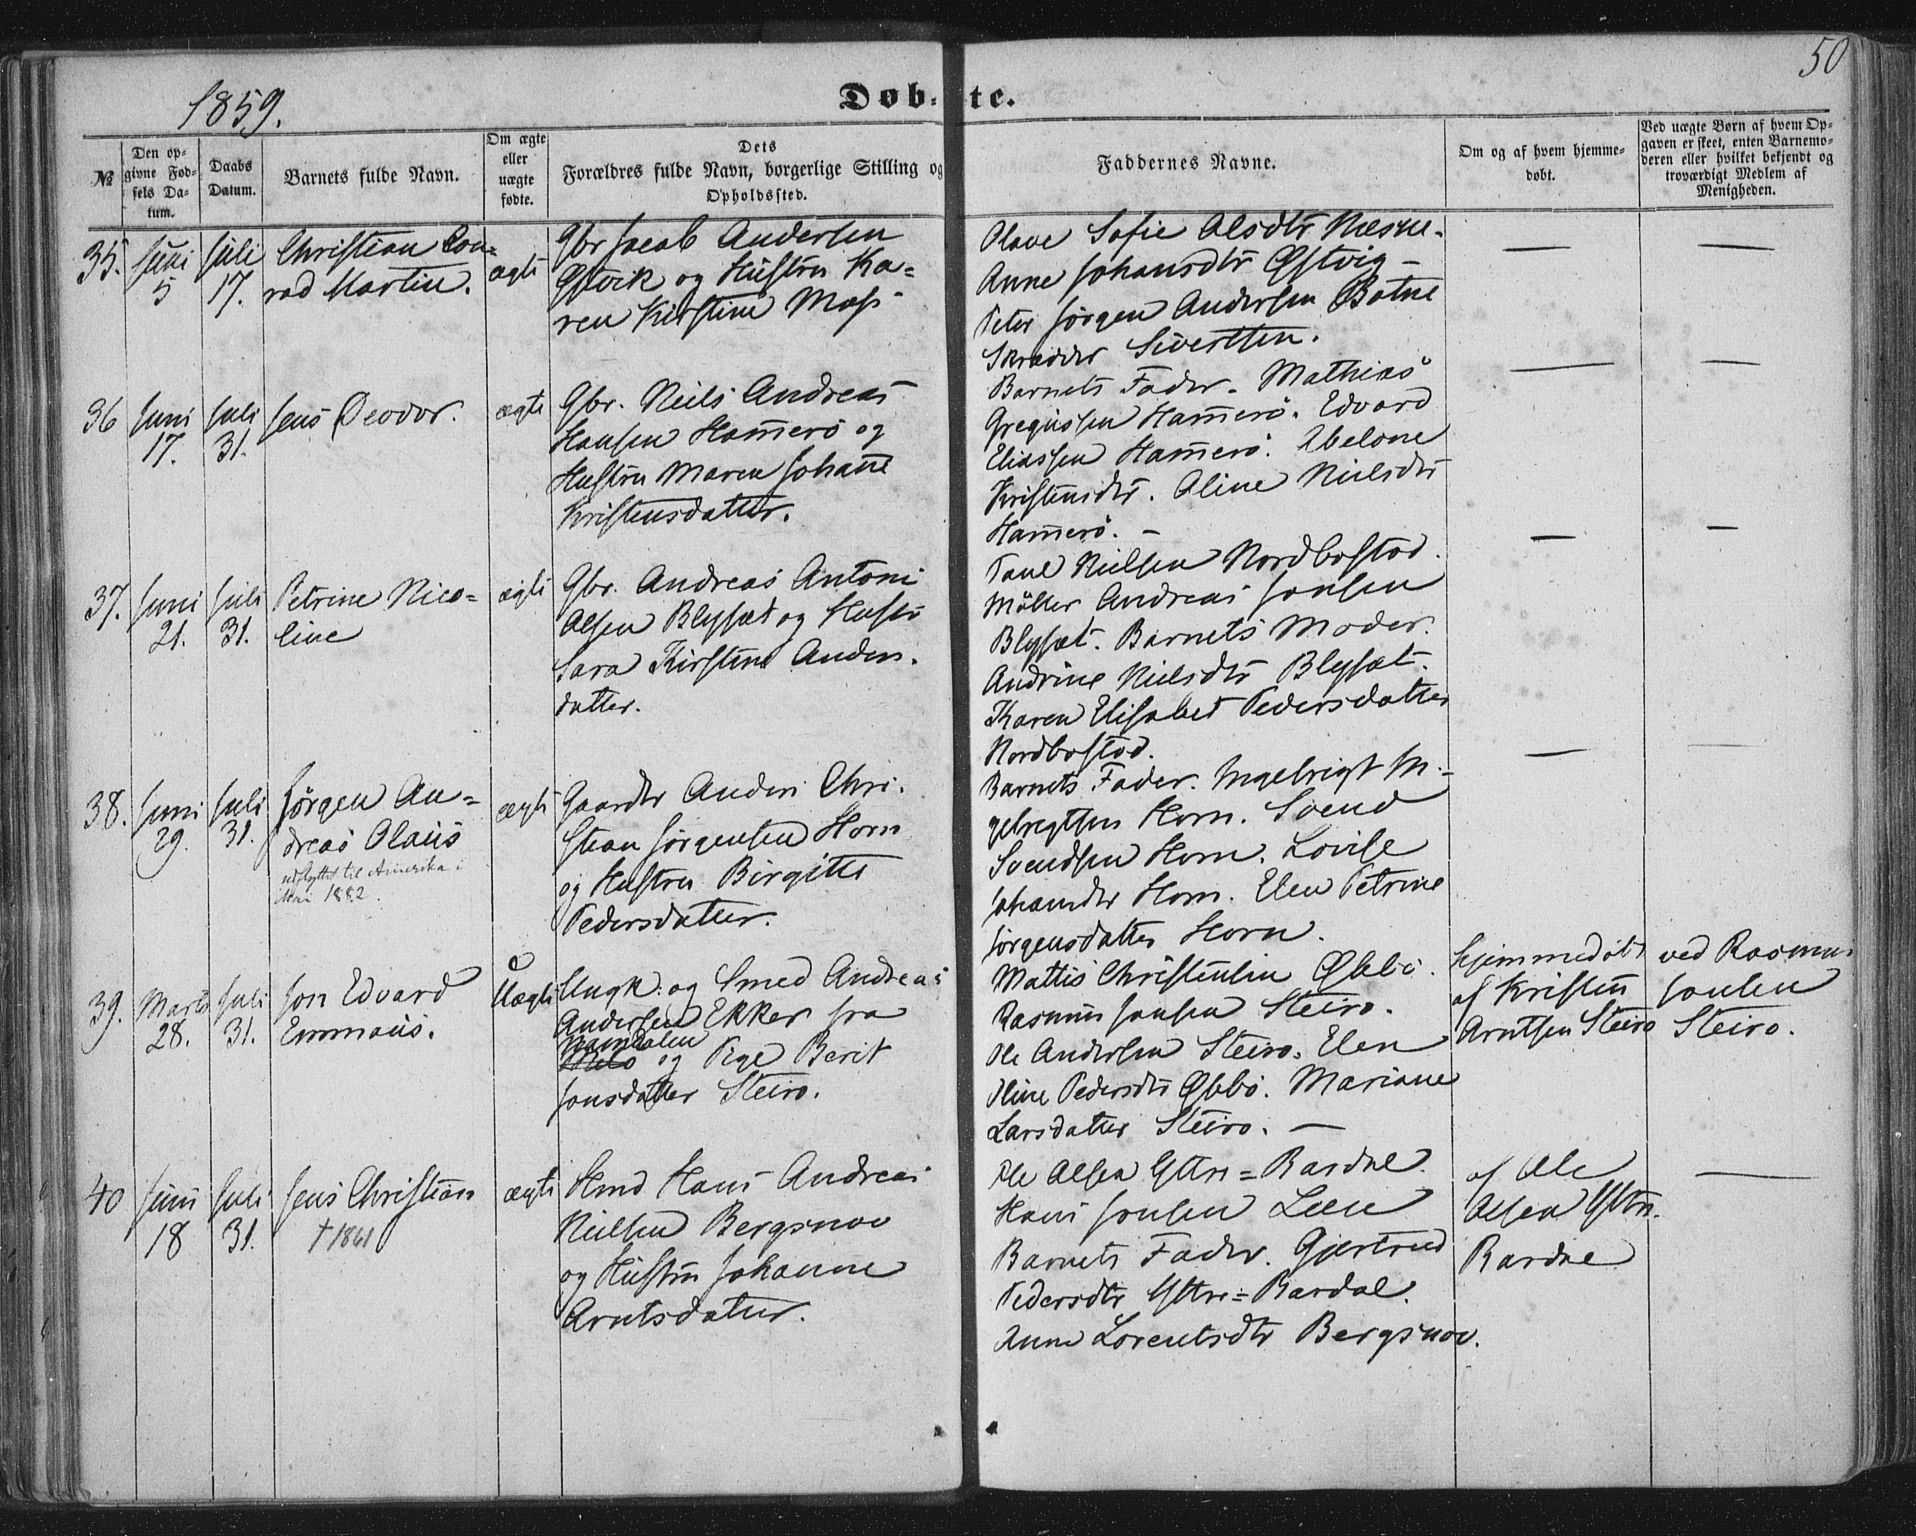 50
1859.
Døb-te.
№
Den op-
givne Fød-
sels Da-
tum.
Daabs
Datum.
Barnets fulde Navn.
Om ægte
eller
uægte
fødte.
Dets
Forældres fulde Navn, borgerlige Stilling og
Opholdssted.
Faddernes Navne.
Om og af hvem hjemme-
døbt.
Ved uægte Børn af hvem Op-
gaven er skeet, enten Barnemo-
deren eller hvilket bekjendt og
troværdigt Medlem af
Menigheden.
35.
Juni
5
Juli
17.
Christian Con-
rad Martin.
ægte
Gbr Jacob Andersen
Østvik og Hustru Ka-
ren Kirstine Mass
Olave Sofie Olsdtr Næsne.
Anne Johansdtr Østvig -
Peter Jørgen Andersen Botne
Skrædder Sivertsen.
—
—
36
Juni
17.
Juli
31.
Jens Deodor.
ægte
Gbr. Niels Andreas
Hansen Ham̅erö og
Hustru Maren Johan̅e
Kristensdatter.
Barnets Fader. Mathias
Gregussen Ham̅erö. Edvard
Eliassen Ham̅erö. Abelone
Kristensdtr. Oline Nielsdtr
Ham̅erö. -
—
—
37.
Juni
21.
Juli
31.
Petrine Nico-
line
ægte
Gbr. Andreas Antoni
Olsen Blysæt og Hustr
Sara Kirstine Anders.
datter.
Paul Nielsen Nordbostad.
Møller Andreas Jonsen
Blysæt. Barnets Moder.
Andrine Nielsdtr Blysæt.
Karen Elisabet Pedersdatter
Nordbostad.
—
—
38.
Juni
29.
Juli
31.
Jørgen An-
dreas Olaus
udflyttet til Amerika i
Mai 1882.
ægte
Gaardbr Anders Chri.
stian Jørgensen Horn
og Hustru Birgitte
Pedersdatter.
Barnets Fader. Ingebrigt In-
gebrigtsen Horn. Svend
Svendsen Horn. Lovise
Johansdtr Horn. Elen Petrine
Jørgensdatter Horn.
—
—
39.
Marts
28.
Juli
31.
Jon Edvard
Emmaus.
Uægte
Ungk. og Smed Andreas
Andersen Ekker fra
Namdalen
og Pige Berit
Jonsdatter Steiro.
Mattis Christensen Øksbö.
Rasmus Jonsen Steiro.
Ole Andersen Steiro. Elen
Oline Pedersdtr Øksbö. Mariane
Larsdatter Steiro. —
hjemmedøbt
af Kristen
Arntsen Steiro
ved Rasmus
Jonsen
Steiro.
40
Juni
18
Juli
31.
Jens Christian
† 1861
ægte
Hmd Hans Andreas
Nielsen Bergsnov
og Hustru Johanne
Arntsdatter.
Ole Olsen Yttre=Bardal.
Hans Jonsen Leen
Barnets Fader. Gjertrud
Pedersdtr Yttre=Bardal.
Anne Lorentsdtr Bergsnov.
af Ole
Olsen Yttre.
Bardal
—